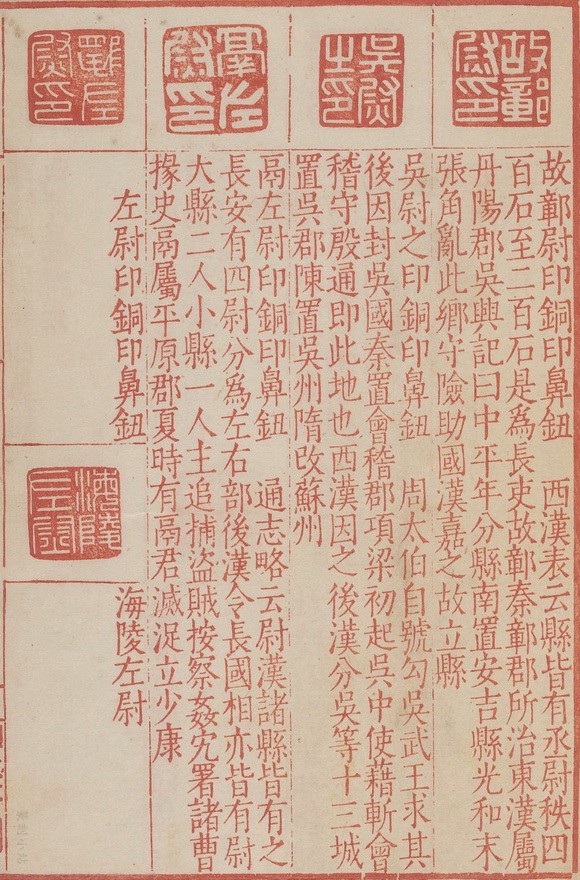 故鄣尉印
故鄣尉印銅印鼻鈕　西漢表云縣皆有丞尉秩四
百石至二百石是為長吏故鄣秦鄣郡所治東漢屬
丹陽郡吳興記曰中平年分縣南置安吉縣光和末
張角亂此鄉守險助國漢嘉之故立縣
吳尉之印
吳尉之印銅印鼻鈕　周太伯自號勾吳武王求其
後因封吳國秦置會稽郡項梁初起吳中使藉斬會
稽守殷通即此地也西漢因之後漢分吳等十三城
置吳郡陳置吳州隋改蘇州
鬲左尉印
鬲左尉印銅印鼻鈕　通志略云尉漢諸縣皆有之
長安有四尉分為左右部後漢令長國相亦皆有尉
大縣二人小縣一人主追捕盜賊按察姦宄署諸曹
掾史鬲屬平原郡夏時有鬲君滅浞立少康
左尉印
左尉印銅印鼻鈕
海陵左尉
海陵左尉